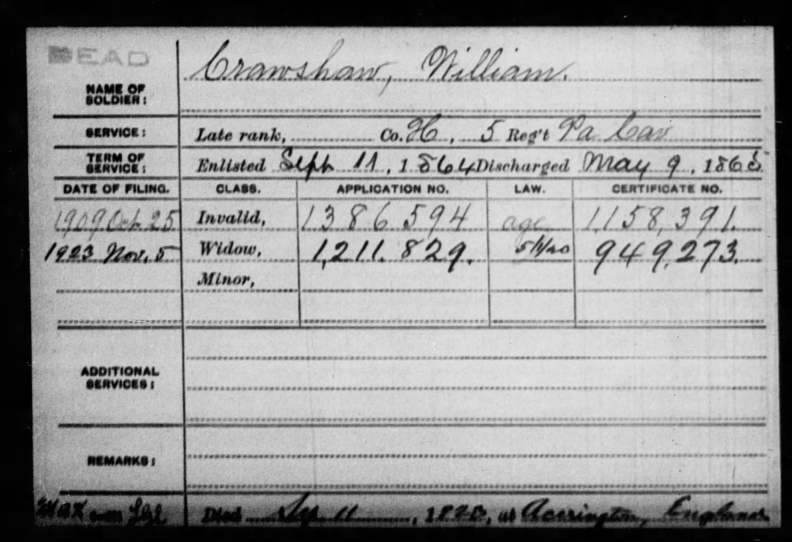 DEAD
NAME OF SOLDIER: Crawshaw, William.
SERVICE: Late rank, Co. H, 5 Reg't Pa Cav
TERM OF SERVICE: Enlisted Sept 11, 1864 Discharged May 9, 1865
DATE OF FILING. CLASS. APPLICATION NO. LAW. CERTIFICATE NO.
1909 Oct. 25 Invalid, 1386594 age 1,158,391.
1923 Nov. 5 Widow, 1,211.829. 949,273.
Minor,
ADDITIONAL SERVICES:
REMARKS:
Died 11, at Accrington, England